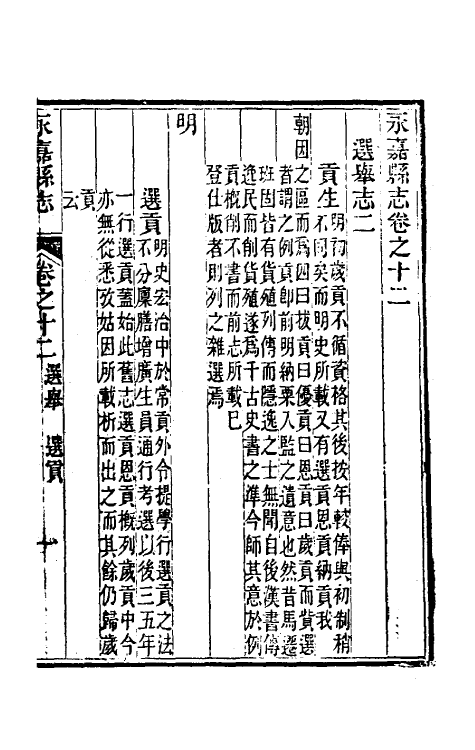 永嘉縣志卷之十二
選舉志二
貢生明初歲貢不循資格其後按年較俸與初制稍
不同矣而明史所載又有選貢恩貢納貢我
朝因之區而爲四曰拔貢曰優貢曰恩貢曰歲貢而貲選
者謂之例貢卽前明納粟入監之遺意也然昔馬遷
班固皆有貨殖列傳而隱逸之士無聞自後漢書傳
逸民而削貨殖遂爲千古史書之準今師其意於例
貢槪削不書而前志所載已
登仕版者則列之雜選焉
明
選貢明史宏治中於常貢外令提學行選貢之法
不分廩膳增廣生員通行考選以後三五年
一行選貢蓋始此舊志選貢恩貢槪列歲貢中今
亦無從悉攷姑因所載析而出之而其餘仍歸歲
貢
云
永嘉縣志
卷之十二 選舉 選貢 一